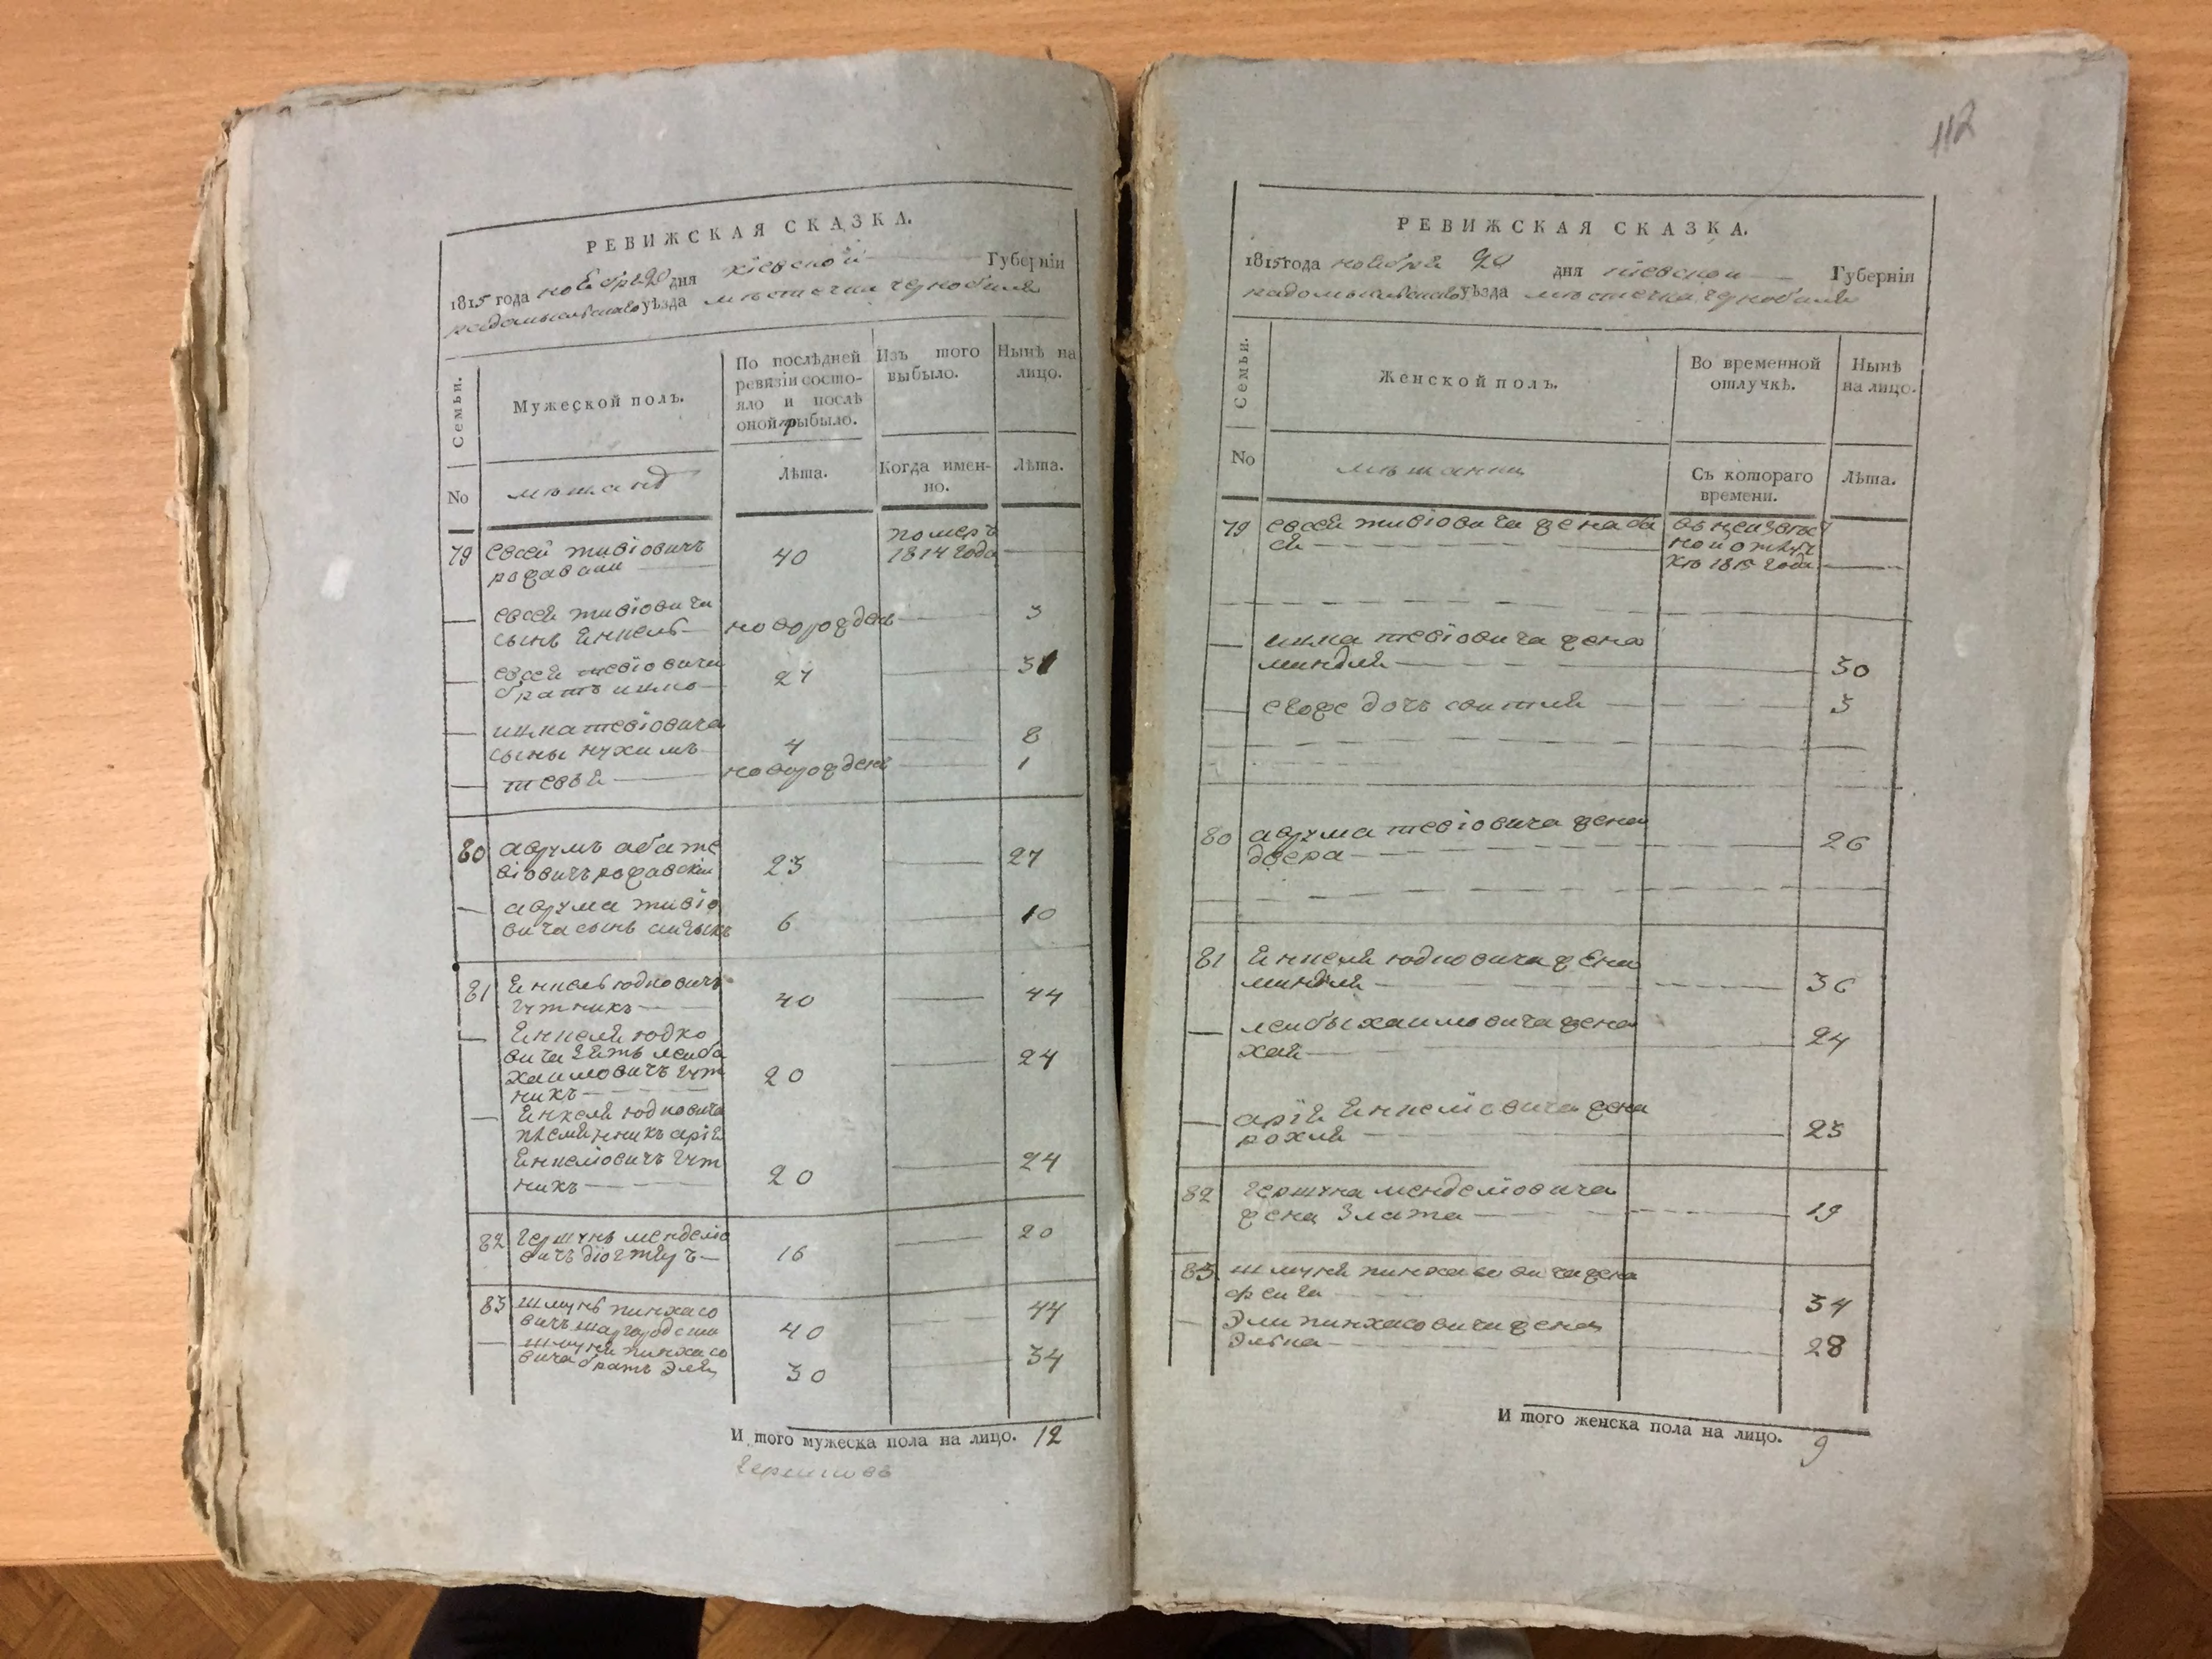 РЕВИЖСКАЯ СКАЗКА.
1815 года ноября 20 дня кіевской Губерніи
радомысльскаго уѣзда мѣстечка чернобиля
Семьи.
Мужеской полъ.
По послѣдней
ревизіи состо-
яло и послѣ
оной прыбыло.
Изъ того
выбыло.
Нынѣ на
лицо.
No
мѣщанѣ
Лѣта.
Когда имен-
но.
Лѣта.
79 евсей тивіовичъ 40 померъ
1814 года
евсей тивіовича
сынъ Янкель новорожденъ 3
евсей тевіовича
братъ ицко 27 31
ицка тевіовича
сыны нухимъ 4 8
тевья новорожденъ 1
80 аврумъ аба те
віовичъ 23 27
аврума тивіо
вича сынъ 6 10
81 Янкель юдковичъ
гутникъ 40 44
Янкеля юдко
вича зять лейба
хаимовичъ гут
никъ 20 24
Янкеля юдковича
племянникъ арія
Янкеліовичъ гут
никъ 20 24
82 гершунъ менделіо
вичъ 16 20
83 шмунь пинхасо
вичъ 40 44
шмуня пинхасо
вича братъ Эля 30 34
И того мужеска пола на лицо. 12
112
РЕВИЖСКАЯ СКАЗКА.
1815 года ноября 20 дня кіевской Губерніи
радомысльскаго уѣзда мѣстечка чернобиля
Семьи.
Женской полъ.
Во временной
отлучкѣ.
Нынѣ
на лицо.
No
мѣщанки
Съ котораго
времени.
Лѣта.
79 евсея тивіовича жена ба
ся
въ неизвѣст
ной отлуч
кѣ 1815 года
ицка тевіовича жена
миндля 30
егоже дочъ 3
80 аврума тевіовича жена
двера 26
81 Янкеля юдковича жена
миндля 36
лейбы хаимовича жена
хая 24
арія Янкеліовича жена
рохля 23
82 гершуна менделіовича
жена Злата 19
83 шмуня пинхасовича жена
фейга 34
Эли пинхасовича жена
Элька 28
И того женска пола на лицо. 9